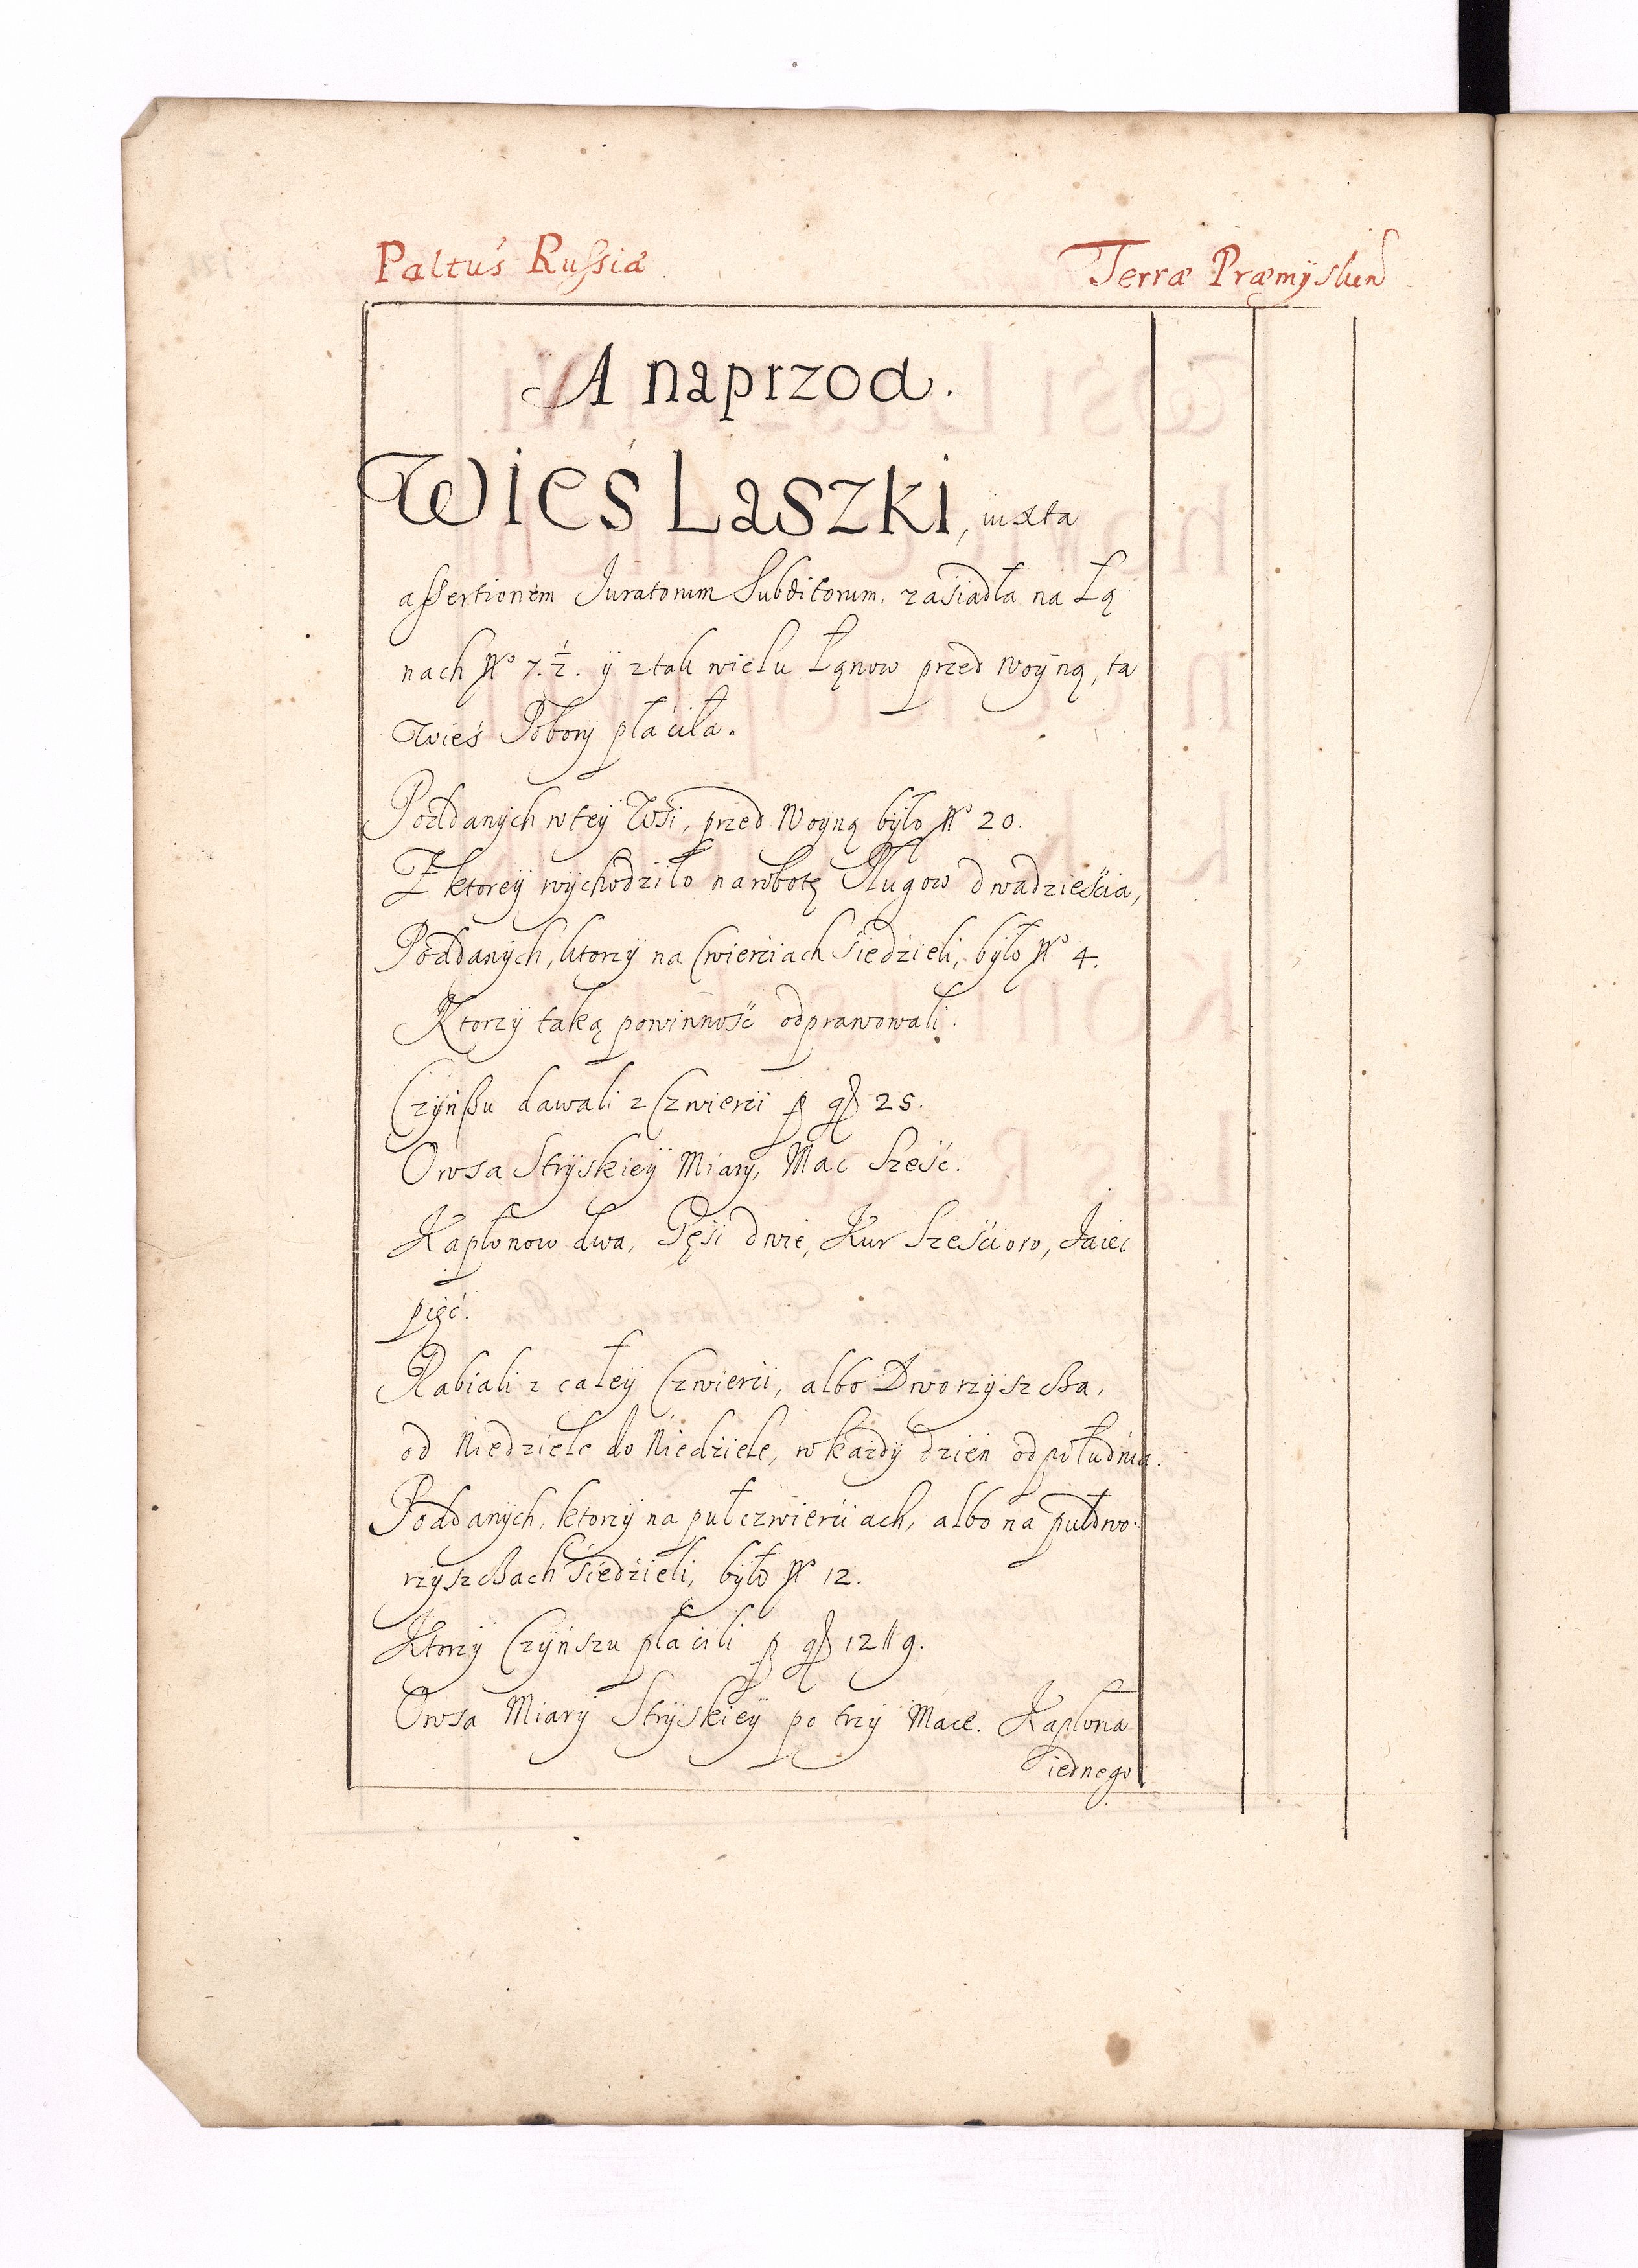 Paltus Russiæ Terræ Præmÿslien
A naprzod.
Wieś Laszki, iuxta
assertionem Juratorum Subditorum, zasiadła na Łą
nach No 7. 1/2. ÿ z tak wielu Łąnow przed Woÿną, ta
Wieś Pobory płaciła.
Poddanÿch w teÿ Wsi, przed Woÿną bÿło No 20.
Z ktoreÿ wÿchodziło na robotę Pługow dwadzieścia,
Poddanÿch, ktorzÿ na Cwierciach siedzieli, bÿło No 4.
Ktorzÿ taką powinność odprawowali.
Czÿnßu dawali z Czwierci p gß 25.
Owsa Strÿskieÿ Miary, Mac Sześć.
Kapłonow dwa, Gęsi dwie, Kur Sześcioro, Jaiec
pięć.
Rabiali z całeÿ Czwierci, albo Dworzÿszcßa,
od Niedziele do Niedziele, w każdÿ dzień od południa.
Poddanÿch, ktorzÿ na pułczwierciach, albo na pułdwo-
rzÿszcßach siedzieli, bÿło No 12.
Ktorzÿ Czÿnszu płacili p gß 12 ll 9.
Owsa Miarÿ Strÿskieÿ po trzÿ Mace. Kapłona
iednego